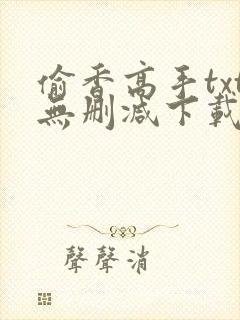 偷香高手txt
無刪減下載
聲聲消